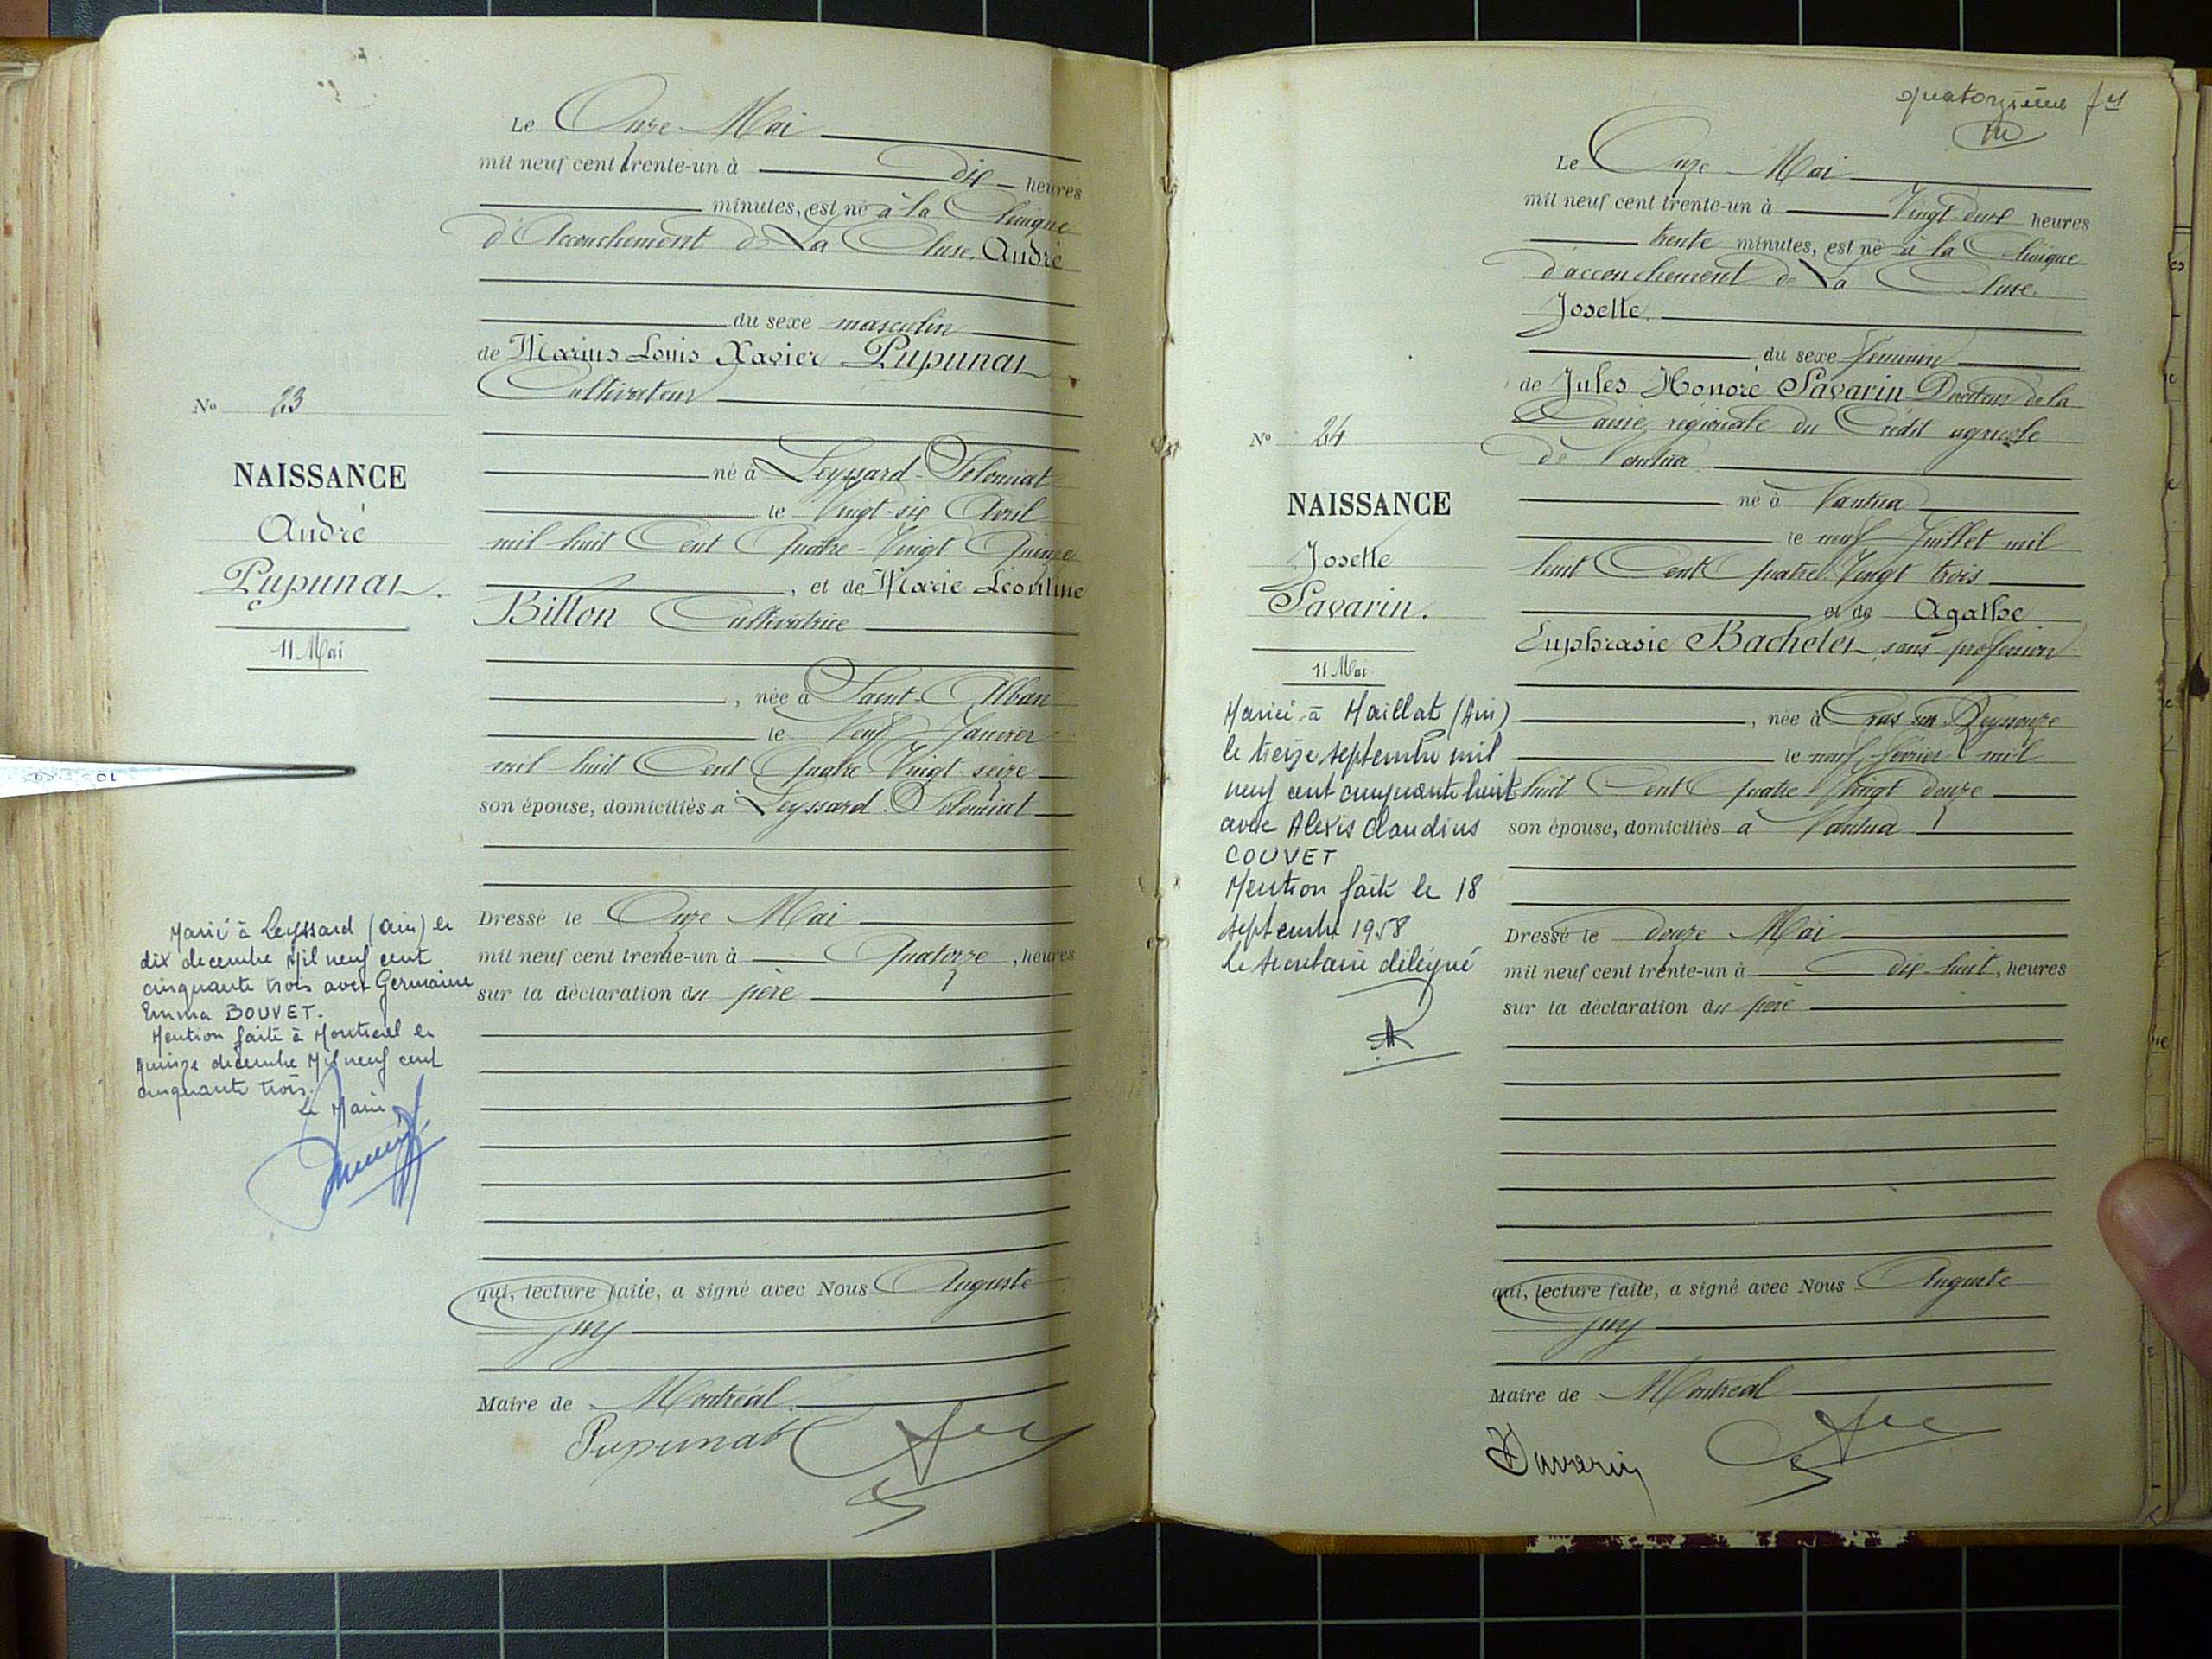 Le Onze Mai
mil neuf cent trente-un à dix heures
minutes, est né à la Clinique
d'Accouchement de La Cluse, André
du sexe masculin
de Marius Louis Xavier Pupunat
Cultivateur
né à Leyssard-Solomiat
le Vingt-six Avril
mil huit Cent Quatre-Vingt Quinze
, et de Marie Léontine
Billon Cultivatrice
, née à Saint-Alban
le Neuf Janvier
mil huit Cent Quatre Vingt-seize
son épouse, domiciliés à Leyssard Solomiat
Dressé le Onze Mai
mil neuf cent trente-un à Quatorze, heures
sur la déclaration du père
qui, lecture faite, a signé avec Nous Auguste
Guy
Maire de Montréal.
Pupunat
No 23
NAISSANCE
André
Pupunat.
11 Mai
Marié à Leyssard (Ain) le
dix decembre Mil neuf cent
cinquante trois avec Germaine
Emma BOUVET.
Mention faite à Montreal le
Quinze decembre Mil neuf cent
cinquante trois.
Le Maire
quatorzième
Le Onze Mai
mil neuf cent trente-un à Vingt-deux heures
trente minutes, est né à la Clinique
d'accouchement de La Cluse.
Josette.
du sexe féminin
de Jules Honoré Savarin Directeur de la
Caisse régionale du Crédit agricole
de Nantua
né à Nantua
le neuf Juillet mil
huit Cent Quatre Vingt trois
et de Agathe
Euphrasie Bachelet sans profession
, née à Cras sur Reyssouze
le neuf février mil
huit Cent Quatre Vingt douze
son épouse, domiciliés à Nantua
Dressé le douze Mai
mil neuf cent trente-un à dix-huit, heures
sur la déclaration du père
qui, lecture faite, a signé avec Nous Auguste
Guy
Maire de Montréal
Savarin
No 24
NAISSANCE
Josette
Savarin.
11 Mai
Mariée à Maillat (Ain)
le treize septembre mil
neuf cent cinquante huit
avec Alexis Claudius
COUVET
Mention faite le 18
septembre 1958
le secretaire délégué